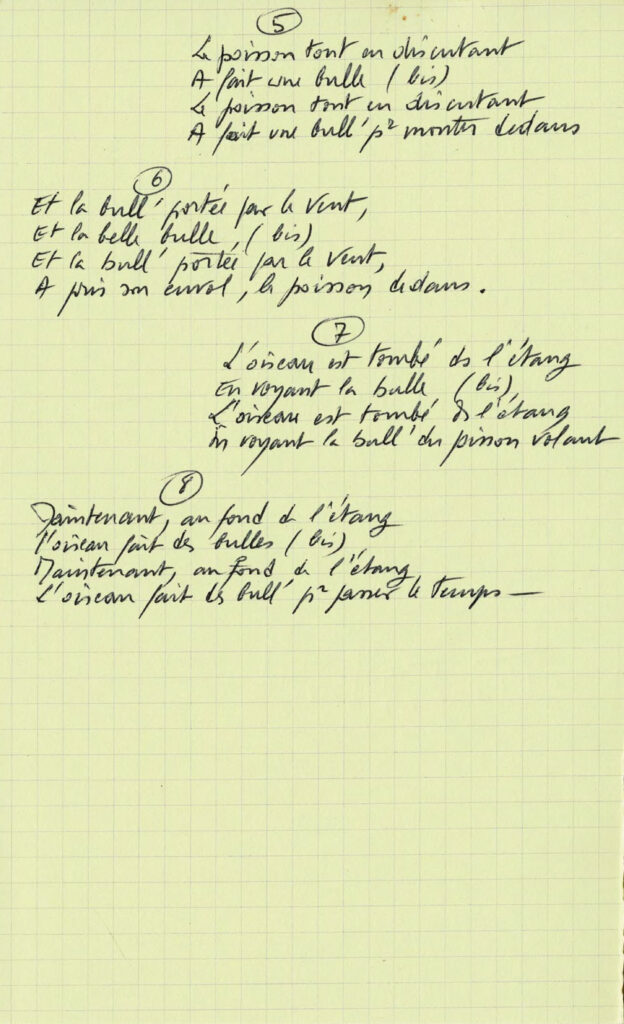 5
Le poisson tout en discutant
A fait une bulle (bis)
Le poisson tout en discutant
A fait une bull' pr monter dedans
6
Et la bull' portée par le vent,
Et la belle bulle, (bis)
Et la bull' portée par le vent,
A pris son envol, le poisson dedans.
7
L'oiseau est tombé ds l'étang
En voyant la bulle (bis)
L'oiseau est tombé ds l'étang
En voyant la bull' du poisson volant
8
Maintenant, au fond de l'étang
l'oiseau fait des bulles (bis)
Maintenant, au fond de l'étang
L'oiseau fait des bull' pr passer le temps —